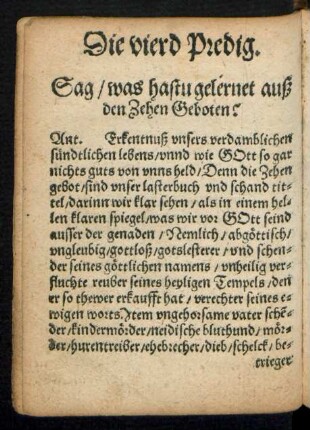 Die vierd Predig.
Sag / was hastu gelernet auß
den Zehen Geboten?
Ant. Erkentnuß vnsers verdamblichen
sündtlichen lebens / vnnd wie GOtt so gar
nichts guts von vnns held / Denn die Zehen
gebot / sind vnser lasterbuch vnd schand tit-
tel / darinn wir klar sehen / als in einem hel-
len klaren spiegel / was wir vor GOtt seind
ausser der genaden / Nemlich / abgöttisch /
vngleubig / gottloß / gotslesterer / vnd schen-
der seines göttlichen namens / vnheilig ver-
fluchte reuber seines heyligen Tempels / den
er so thewer erkaufft hat / verechter seines e-
wigen worts. Item vngehorsame vater schē-
der / kindermörder / neidische bluthund / mör-
der / hurentreiber / ehebrecher / dieb / schelck / be-
trieger